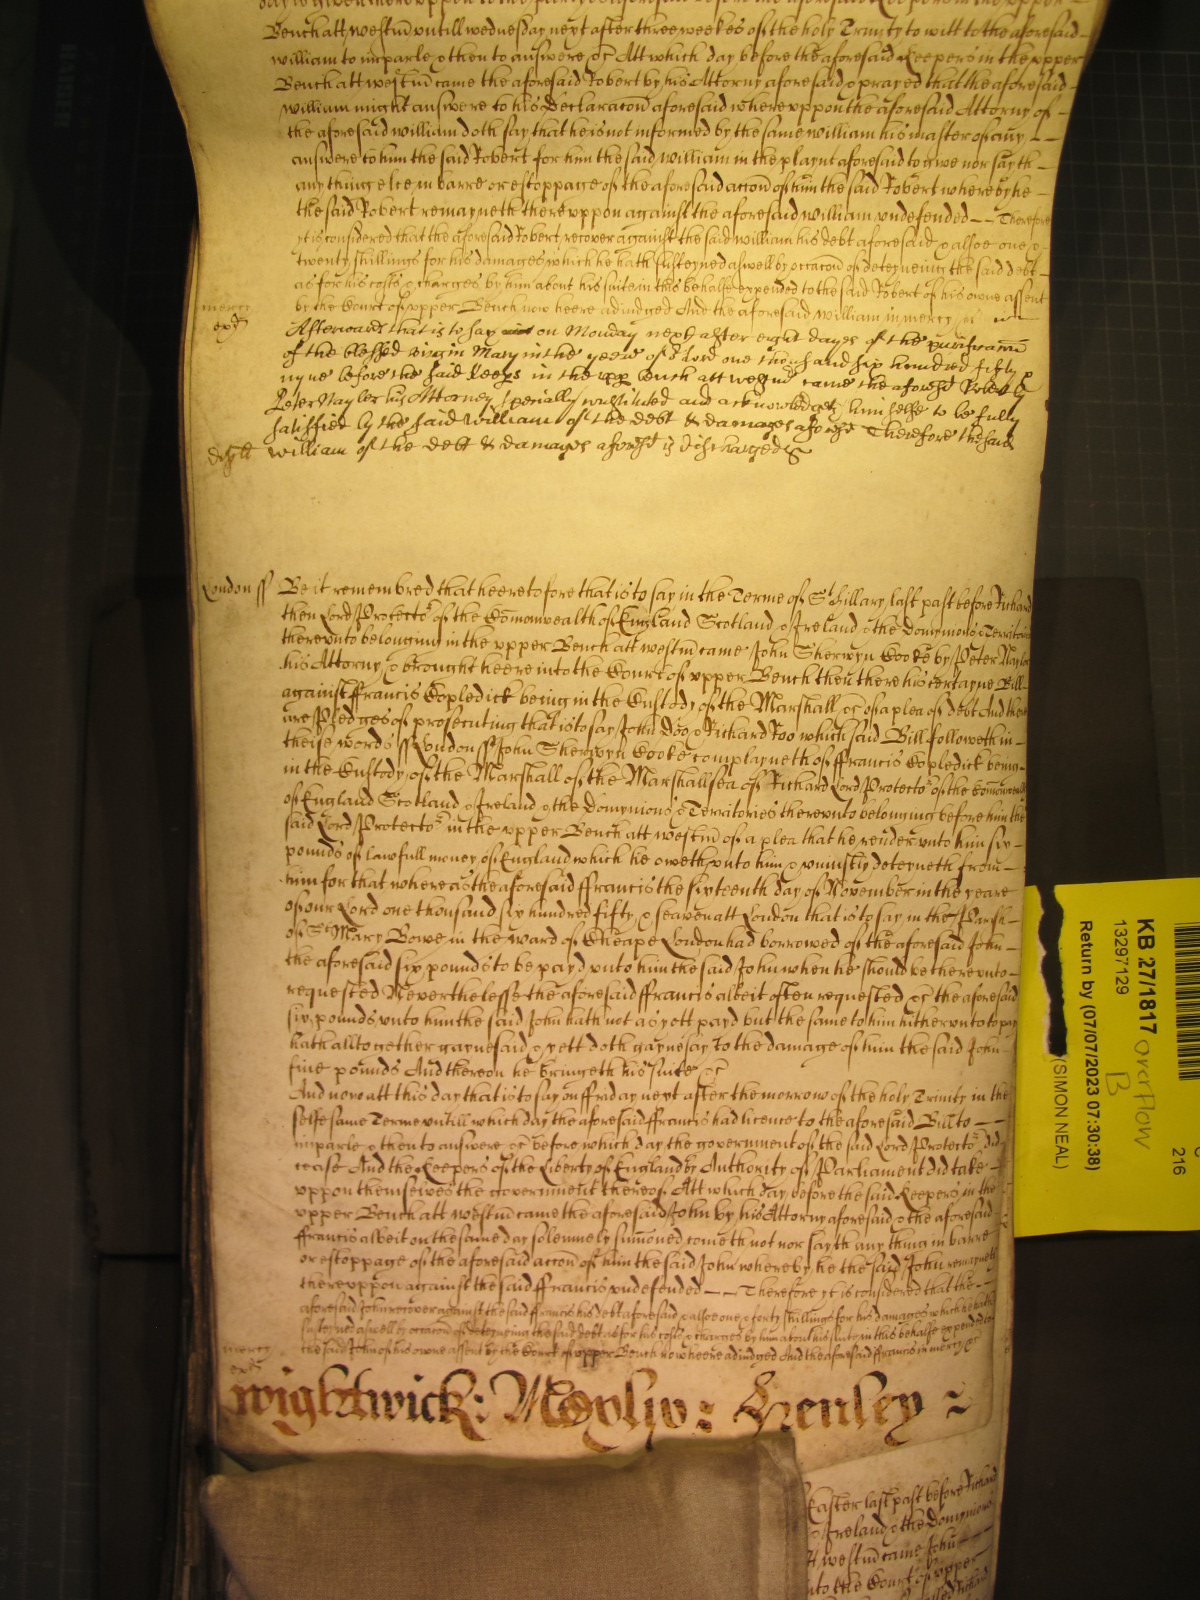 Bench att westm untill wednesday next after three weekes of the holy Trinity to witt to the aforesaid
william to imparle & then to answere &c Att which day before the aforesaid Keepers in the upper
Bench att westm came the aforesaid Robert by his Attorny aforesaid & prayed that the aforesaid
william might answere to his Declaracon aforesaid whereuppon the aforesaid Attorny of
the aforesaid william doth say that he is not informed by the same william his master of any
answere to him the said Robert for him the said william in the playnt aforesaid to give nor sayth
any thing else in barre or estoppage of the aforesaid accon of him the said Robert whereby he
the said Robert remayneth thereuppon against the aforesaid william undefended Therefore
yt is considered that the aforesaid Robert recover against the said william his debt aforesaid & allsoe one &
twenty shillings for his damages which he hath susteyned aswell by occacon of deteyneing the said debt
as for his costs & charges by him about his suite in this behalfe expended to the said Robert of his owne assent
mercy
by the Court of upper Bench now heere adiudged And the aforesaid william in mercy &c
Afterwards that is to say on Monday next after eight dayes of the purificacon
of the blessed virgin Mary in the yeare of or Lord one thousand six hundred fifty &
nyne before the said keeprs in the upp bench att westm came the aforesd Robert by
Peter Nayler his Attorney specially constituted and acknowledgeth himselfe to be fully
satisfied by the said William of the debt & damages aforesd Therefore the said
william of the debt & damages aforesd is discharged &c
London ss Be it remembred that heeretofore that is to say in the Terme of St hillary last past before Richard
then Lord Protector of the Comonwealth of England Scotland & Ireland & the Dominions & Territories
thereunto belonging in the upper Bench att westm came John Sherwyn Cooke by Peter Nayler
his Attorny & brought heere into the Court of upper Bench then there his certayne Bill
against ffrancis Copledick being in the Custody of the Marshall &c of a plea of debt And there
are Pledges of prosecuting that is to say John Doo & Richard Roo which said Bill followeth in
theise words ss London ss John Sherwyn Cooke complayneth of ffrancis Copledick being
in the Custody of the Marshall of the Marshallsea of Richard Lord Protector of the Comonwealth
of England Scotland & Ireland & the Dominions & Territories thereunto belonging before him the
said Lord Protector in the upper Bench att westm of a plea that he render unto him six
pounds of lawfull money of England which he oweth unto him & uniustly deteyneth from
him for that whereas the aforesaid ffrancis the sixteenth day of November in the yeare
of our Lord one thousand six hundred fifty & seaven att London that is to say in the Parish
of St Mary Bowe in the ward of Cheape London had borrowed of the aforesaid John
the aforesaid six pounds to be payd unto him the said John when he should be thereunto
requested Neverthelesse the aforesaid ffrancis albeit often requested &c the aforesaid
six pounds unto him the said John hath not as yett payd but the same to him hitherunto to pay
hath alltogether gaynesaid & yett doth gaynesay To the damage of him the said John
five pounds And thereon he bringeth his suite &c
And now att this day that is to say on ffriday next after the morrow of the holy Trinity in the
selfe same Terme untill which day the aforesaid ffrancis had licence to the aforesaid Bill to
imparle & then to answere &c before which day the government of the said Lord Protector did
cease And the Keepers of the Liberty of England by Authority of Parliament did take
uppon themselves the government thereof Att which day before the said Keepers in the
upper Bench att westm came the aforesaid John by his Attorny aforesaid & the aforesaid
ffrancis albeit on the same day solemnely sumoned cometh not nor sayth any thing in barre
or estoppage of the aforesaid accon of him the said John whereby he the said John remayneth
thereuppon against the said ffrancis undefended Therefore yt is considered that the
aforesaid John recover against the said ffrancis his debt aforesaid & allsoe one & forty shillings for his damages which he hath
susteyned aswell by occacon of deteyneing the said debt as for his costs & charges by him about his suite in this behalfe expended to
mercy
the said John of his owne assent by the Court of upper Bench now heere adiudged And the aforesaid ffrancis in mercy &c
wightwick: Moylyn: Henley
Easter last past before Richard
Ireland & the Dominions
westm came John
into the Court of upper
KB 27/1817 overflow
B
13297129
Return by (07/07/2023 07:30:38)
(SIMON NEAL)
216